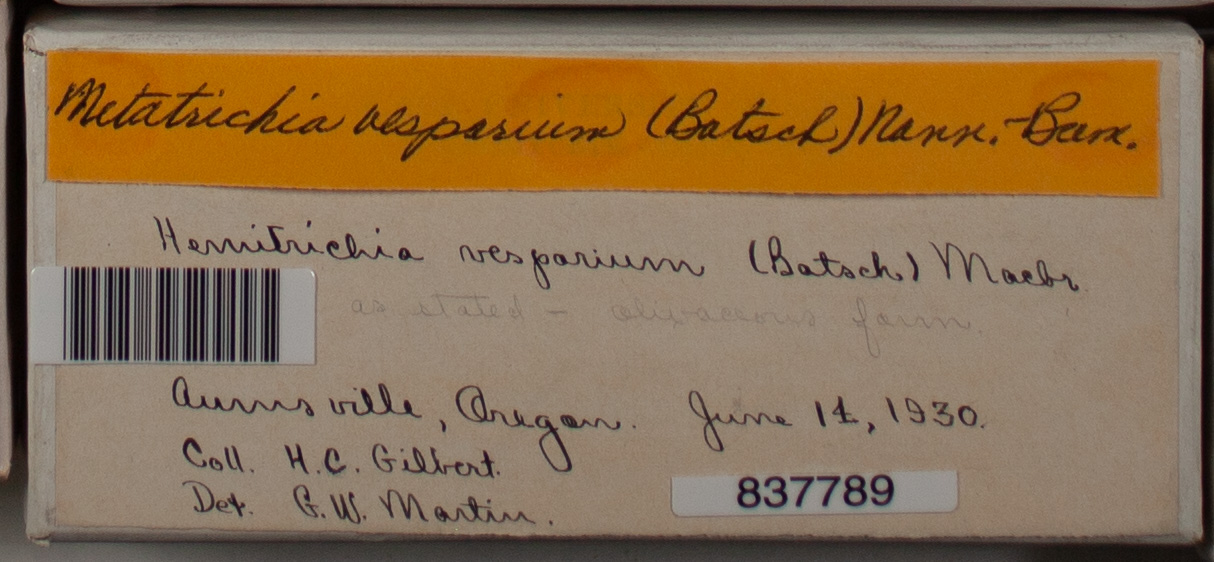 Metatrichia vesparium (Batsch) Nann.-Brem.
Hemitrichia vesparium (Batsch) Macbr.
as stated - olivaceous form.
Aumsville, Oregon. June 14, 1930.
Coll. H.C. Gilbert.
Det. G.W. Martin.
837789